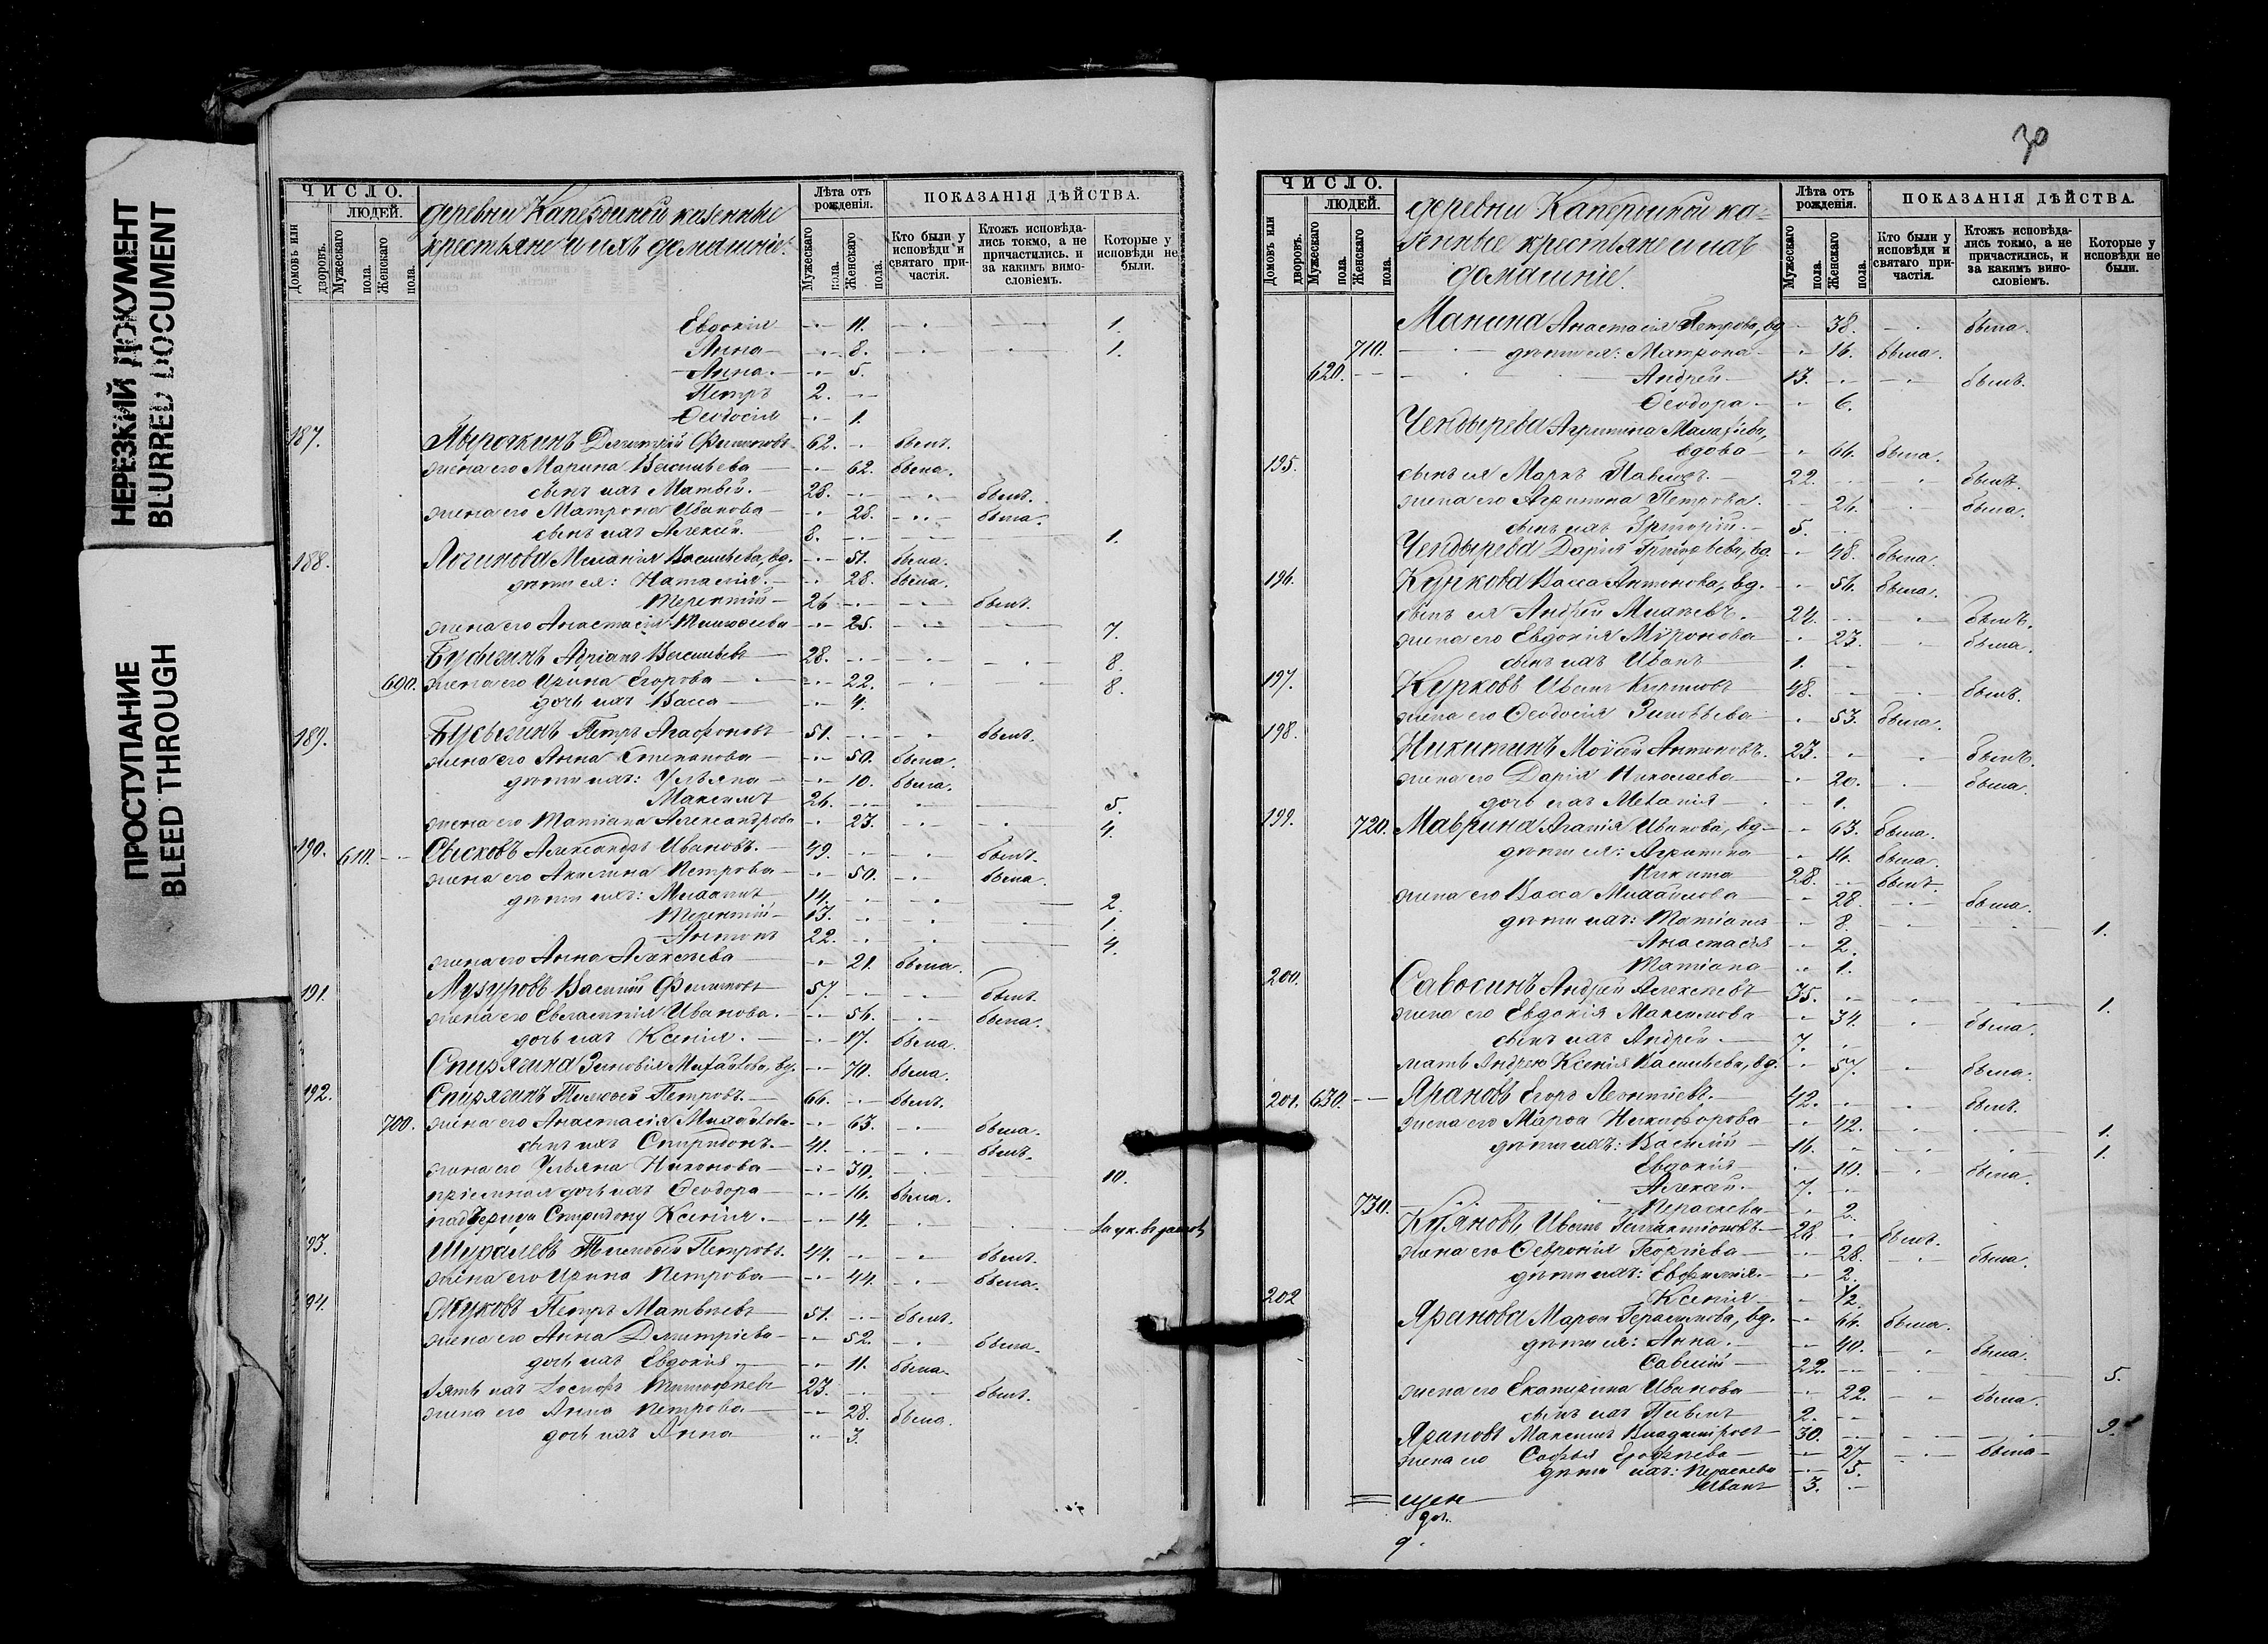 НЕРЕЗКИЙ ДОКУМЕНТ
BLURRED DOCUMENT
ПРОСТУПАНИЕ
BLEED THROUGH
ЧИСЛО.
ЛЮДЕЙ.
Домовъ или дворовъ.
Мужескаго пола.
Женскаго пола.
деревни казенные
крестьяне и ихъ домашніе.
Лѣта отъ рожденія.
Мужескаго пола.
Женскаго пола.
ПОКАЗАНІЯ ДѢЙСТВА.
Кто были у исповѣди и святаго причастія.
Ктожъ исповѣдались токмо, а не причастились, и за какимъ винословіемъ.
Которые у исповѣди не были.
Евдокія 11. 1.
Анна 8. 1.
Анна 5.
Петръ 2.
Ѳеодосія 1.
187. Дмитрій Филиповъ 62. былъ.
жена его Марина Васильева 62. была.
сынъ ихъ Матвѣй 28. былъ.
жена его Матрона Иванова 28. была.
сынъ ихъ Алексѣй 8. 1.
188. Логинова Меланія Васильева, вд. 51. была.
дѣти ея: Наталія 28. была.
Терентій 26 былъ.
жена его Анастасія Тимоѳеева 25. 7.
Бусыгинъ Адріанъ Васильевъ 28. 8.
690. жена его Ирина Егорова 22. 8.
дочь ихъ Васса 4.
189. Бусыгинъ Петръ Агафоновъ 51. былъ.
жена его Анна Степанова 50. была.
дѣти ихъ: Ульяна 10. была.
Максимъ 26. 5.
жена его Татіана Александрова 23. 4.
190. 610. Сысковъ Александръ Ивановъ 49. былъ.
жена его Акилина Петрова 50. была.
дѣти ихъ: Михаилъ 14. 2.
Терентій 13. 1.
Антонъ 22. 4.
жена его Анна Алексѣева 21. была.
191. Музуровъ Василій Филиповъ 57. былъ.
жена его Евлампія Иванова 56. была.
дочь ихъ Ксенія 17. была.
Спирягина Зиновія Михайлова, вд. 70. была.
192. Спирягинъ Тимоѳей Петровъ 66. былъ.
700. жена его Анастасія Михайлова 63. была.
сынъ ихъ Спиридонъ 41. былъ.
жена его Ульяна Никонова 30. 10.
пріемная дочь ихъ Ѳеодора 16. была.
падчерица Спиридону Ксенія 14.
93. Шуралевъ Тимоѳей Петровъ 44. былъ.
жена его Ирина Петрова 44. была.
94. Жуковъ Петръ Матвѣевъ 51. былъ.
жена его Анна Дмитріева 52. была.
дочь ихъ Евдокія 11. была.
зять ихъ Іосифъ Тимоѳеевъ 23. былъ.
жена его Анна Петрова 28. была.
дочь ихъ Анна 3.
30
ЧИСЛО.
ЛЮДЕЙ.
Домовъ или дворовъ.
Мужескаго пола.
Женскаго пола.
деревни ка-
зенные крестьяне и ихъ
домашніе.
Лѣта отъ рожденія.
Мужескаго пола.
Женскаго пола.
ПОКАЗАНІЯ ДѢЙСТВА.
Кто были у исповѣди и святаго причастія.
Ктожъ исповѣдались токмо, а не причастились, и за какимъ винословіемъ.
Которые у исповѣди не были.
Манина Анастасія Петрова, вд 38. была.
710. дѣти ея: Матрона 16. была.
620. Андрей 13. былъ.
Ѳеодора 6.
Чендырева Агрипина Малаѳіева,
вдова 66. была.
195. сынъ ея Маркъ Павловъ 22. былъ.
жена его Агрипина Петрова 26. была.
сынъ ихъ Григорій 5.
Чендырева Дарія Григорьева, вд. 48. была.
196. Куркова Васса Антонова, вд. 56. была.
сынъ ея Андрей 24. былъ.
жена его Евдокія Миронова 23. была.
сынъ ихъ Иванъ 1.
197. Курковъ Иванъ 48. былъ.
жена его Ѳеодосія Зиновьева 53. была.
198. Никитинъ Моѵсей Антоновъ 23. былъ.
жена его Дарія Николаева 20. была.
дочь ихъ Меланія 1.
199. 720. Маврина Агапія Иванова, вд 63. была.
дѣти ея: Агрипина 16. была.
Никита 28. былъ.
жена его Васса Михайлова 28. была.
дѣти ихъ: Татіана 8. 1.
Анастасія 2.
Татіана 1.
200. Савосинъ Андрей Алексѣевъ 35. 1.
жена его Евдокія Максимова 34. была.
сынъ ихъ Андрей 7.
мать Андрею Ксенія Васильева, вд. 57. была.
201. 630. Ярановъ Егоръ Леонтіевъ 42. былъ.
жена его Марѳа Никифорова 42. 1.
дѣти ихъ: Василій 16. 1.
Евдокія 10. была.
Алексѣй 7.
730. Параскева 2.
Иванъ Галактіоновъ 28 былъ.
жена его Ѳевронія Георгіева 28. была.
дѣти ихъ: Евфимія 2.
Ксенія 1/2.
202 Яранова Марѳа Герасимова, вд. 64. была.
дѣти ея: Анна 40. была.
Савелій 22. 5.
жена его Екатерина Иванова 22. была.
сынъ ихъ Павелъ 2.
Ярановъ Максимъ Владиміровъ 30. 9.
жена его Софья Ероѳѣева 27. была
дѣти ихъ: Параскева 5.
Иванъ 3.